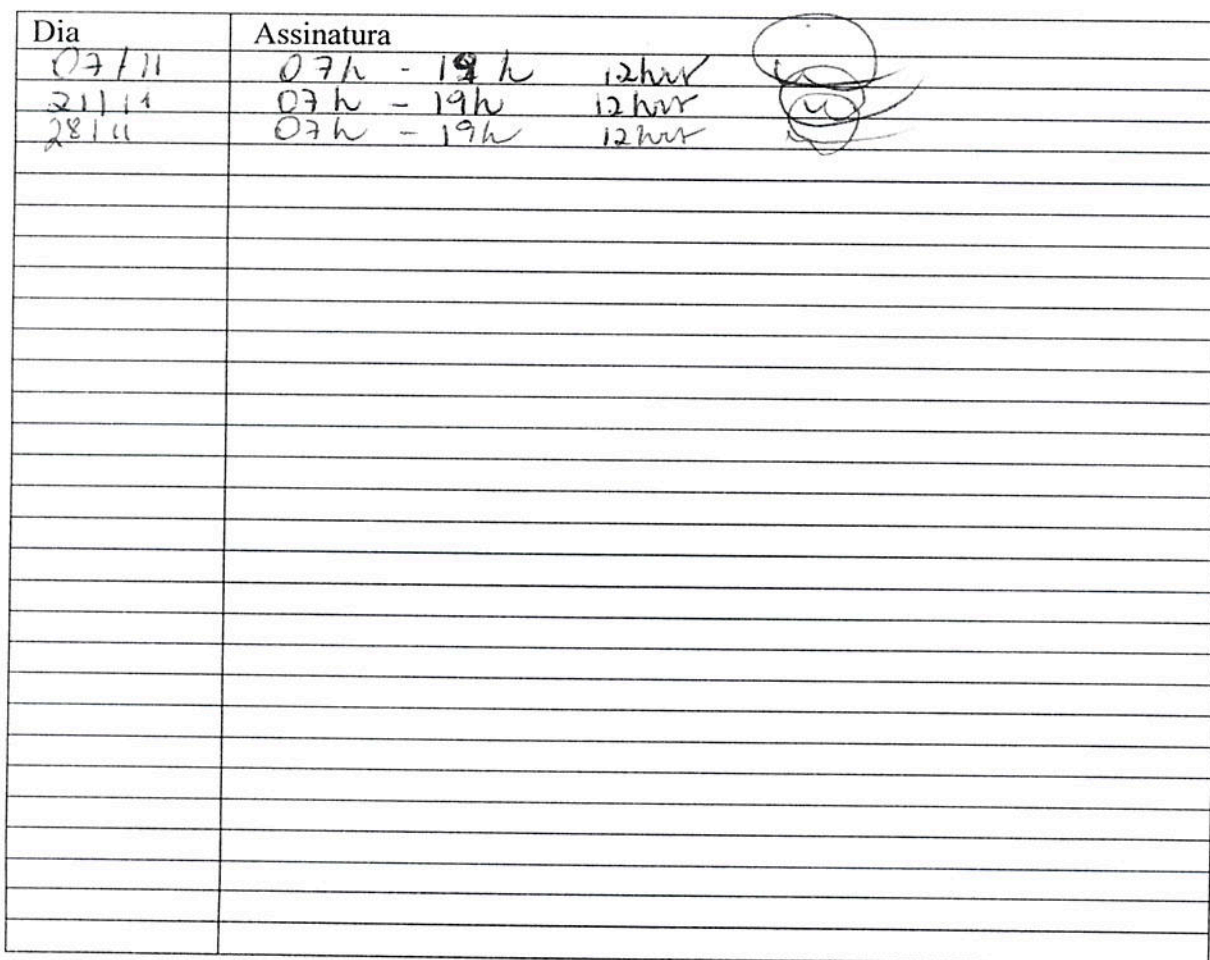 Dia Assinatura
07/11 07h - 19h 12hrs
21/11 07h - 19h 12hrs
28/11 07h - 19h 12hrs